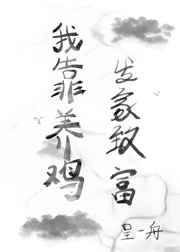 我靠养鸡
发家致富
呈一舟